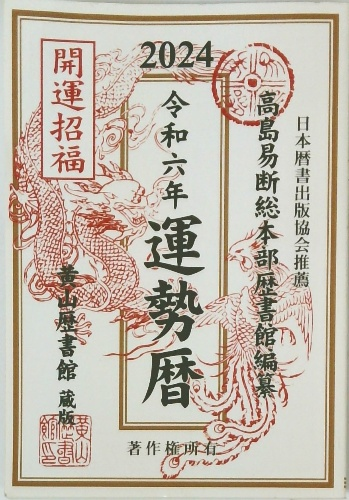 2024
日本暦書出版協会推薦
高島易断総本部歴書館編纂
令和六年
運勢暦
開運招福
著作権所有